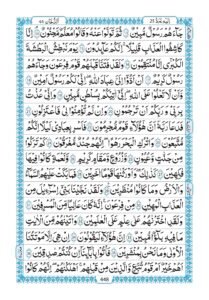 الدخان ٤٤
اليه يرد ٢٥
جَآءَهُمْ رَسُولٌ مُّبِينٌ ثُمَّ تَوَلَّوْا عَنْهُ وَقَالُوا مُعَلَّمٌ مَّجْنُونٌ إِنَّا
كَاشِفُوا الْعَذَابِ قَلِيلًا إِنَّكُمْ عَآئِدُونَ يَوْمَ نَبْطِشُ الْبَطْشَةَ
الْكُبْرٰى إِنَّا مُنْتَقِمُونَ وَلَقَدْ فَتَنَّا قَبْلَهُمْ قَوْمَ فِرْعَوْنَ وَجَآءَهُمْ
رَسُولٌ كَرِيمٌ أَنْ أَدُّوا إِلَيَّ عِبَادَ اللّٰهِ إِنِّي لَكُمْ رَسُولٌ أَمِينٌ
وَأَنْ لَّا تَعْلُوا عَلَى اللّٰهِ إِنِّي آتِيكُمْ بِسُلْطٰنٍ مُّبِينٍ وَإِنِّي عُذْتُ
بِرَبِّي وَرَبِّكُمْ أَنْ تَرْجُمُونِ وَإِنْ لَّمْ تُؤْمِنُوا لِي فَاعْتَزِلُونِ
فَدَعَا رَبَّهُ أَنَّ هٰؤُلَآءِ قَوْمٌ مُّجْرِمُونَ فَأَسْرِ بِعِبَادِي لَيْلًا إِنَّكُمْ
مُّتَّبَعُونَ وَاتْرُكِ الْبَحْرَ رَهْوًا إِنَّهُمْ جُنْدٌ مُّغْرَقُونَ كَمْ تَرَكُوا
مِنْ جَنّٰتٍ وَّعُيُونٍ وَّزُرُوعٍ وَّمَقَامٍ كَرِيمٍ وَّنَعْمَةٍ كَانُوا فِيهَا
فٰكِهِينَ كَذٰلِكَ وَأَوْرَثْنٰهَا قَوْمًا آخَرِينَ فَمَا بَكَتْ عَلَيْهِمُ السَّمَآءُ
وَالْأَرْضُ وَمَا كَانُوا مُنْظَرِينَ وَلَقَدْ نَجَّيْنَا بَنِي إِسْرَآئِيلَ مِنَ
الْعَذَابِ الْمُهِينِ مِنْ فِرْعَوْنَ إِنَّهُ كَانَ عَالِيًا مِّنَ الْمُسْرِفِينَ
وَلَقَدِ اخْتَرْنٰهُمْ عَلٰى عِلْمٍ عَلَى الْعٰلَمِينَ وَآتَيْنٰهُمْ مِّنَ الْآيٰتِ
مَا فِيهِ بَلٰٓؤٌا مُّبِينٌ إِنَّ هٰؤُلَآءِ لَيَقُولُونَ إِنْ هِيَ إِلَّا مَوْتَتُنَا
الْأُولٰى وَمَا نَحْنُ بِمُنْشَرِينَ فَأْتُوا بِآبَآئِنَا إِنْ كُنْتُمْ صٰدِقِينَ
أَهُمْ خَيْرٌ أَمْ قَوْمُ تُبَّعٍ وَّالَّذِينَ مِنْ قَبْلِهِمْ أَهْلَكْنٰهُمْ إِنَّهُمْ كَانُوا
448